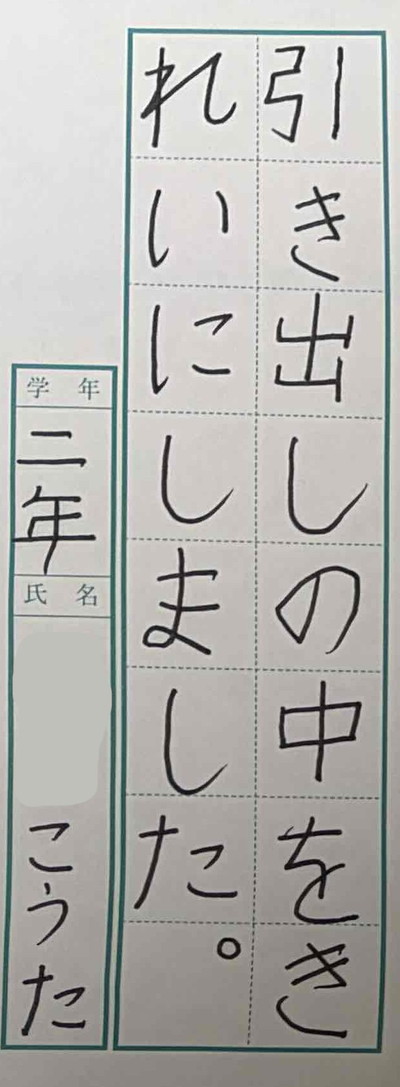 引き出しの中をき
れいにしました。
学年
二年
氏名
こうた